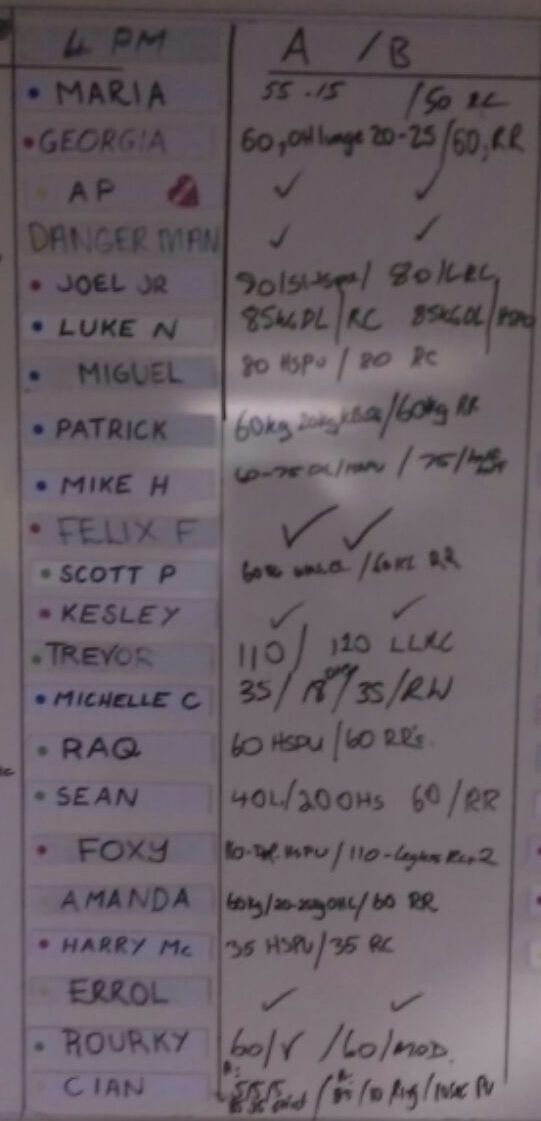 4 PM A / B
MARIA 55 .15 / 50 RC
GEORGIA 60, OH lunge 20-25/60, RR
AP ✓ ✓
DANGERMAN ✓ ✓
JOEL JR 80/LRC
LUKE N 85KG DL/RC 85KG DL/
MIGUEL 80 HSPU / 80 RC
PATRICK 60kg 20kg /60kg RR
MIKE H 60-75 DL/HSPU / 75/
FELIX F ✓ ✓
SCOTT P /60KG RR
KESLEY ✓ ✓
TREVOR 110/ 120 LLRC
MICHELLE C 35/ 18 /35/RW
RAQ 60 HSPU/60 RR's.
SEAN 40L/20OHS 60/RR
FOXY HSPU/110-
AMANDA 60kg/20-25kg OHL/60 RR
HARRY Mc 35 HSPU/35 RC
ERROL ✓ ✓
ROURKY 60/V /60/MOD.
CIAN